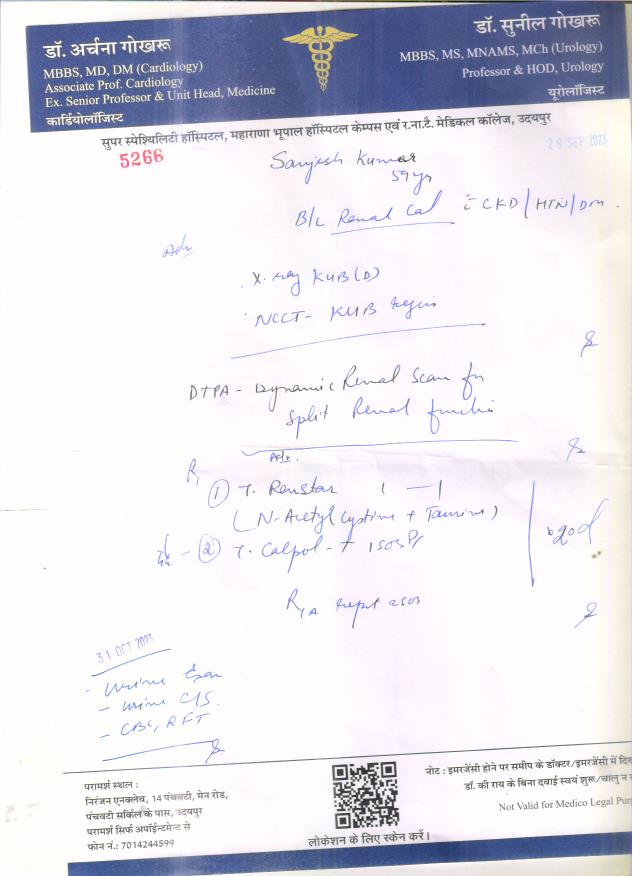 डॉ. अर्चना गोखरू
MBBS, MD, DM (Cardiology)
Associate Prof. Cardiology
Ex. Senior Professor & Unit Head, Medicine
कार्डियोलॉजिस्ट
डॉ. सुनील गोखरू
MBBS, MS, MNAMS, MCh (Urology)
Professor & HOD, Urology
यूरोलॉजिस्ट
सुपर स्पेश्यिलिटी हॉस्पिटल, महाराणा भूपाल हॉस्पिटल केम्पस एवं र.ना.टै. मेडिकल कॉलेज, उदयपुर
5266
29 SEP 2023
Sanjesh Kumar
59 yr
B/L Renal Cal c̄ CKD/HTN/DM.
Adv
X-ray KUB (D)
NCCT- KUB region
DTPA - Dynamic Renal Scan for
Split Renal function
Adv.
R
1 T. Renstar 1 — 1
(N-Acetyl Cystine + Taurine)
2 T. Calpol - 1 SOS
20d
R/A report
31 OCT 2023
- Urine Exam
- Urine C/S.
- CBC, RFT
परामर्श स्थल :
निरंजन एनक्लेव, 14 पंचवटी, मेन रोड,
पंचवटी सर्किल के पास, उदयपुर
परामर्श सिर्फ अपॉईन्टमेन्ट से
फोन नं.: 7014244599
लोकेशन के लिए स्केन करें।
नोट : इमरजेंसी होने पर समीप के डॉक्टर/इमरजेंसी में
डॉ. की राय के बिना दवाई स्वयं शुरू/चालु न
Not Valid for Medico Legal